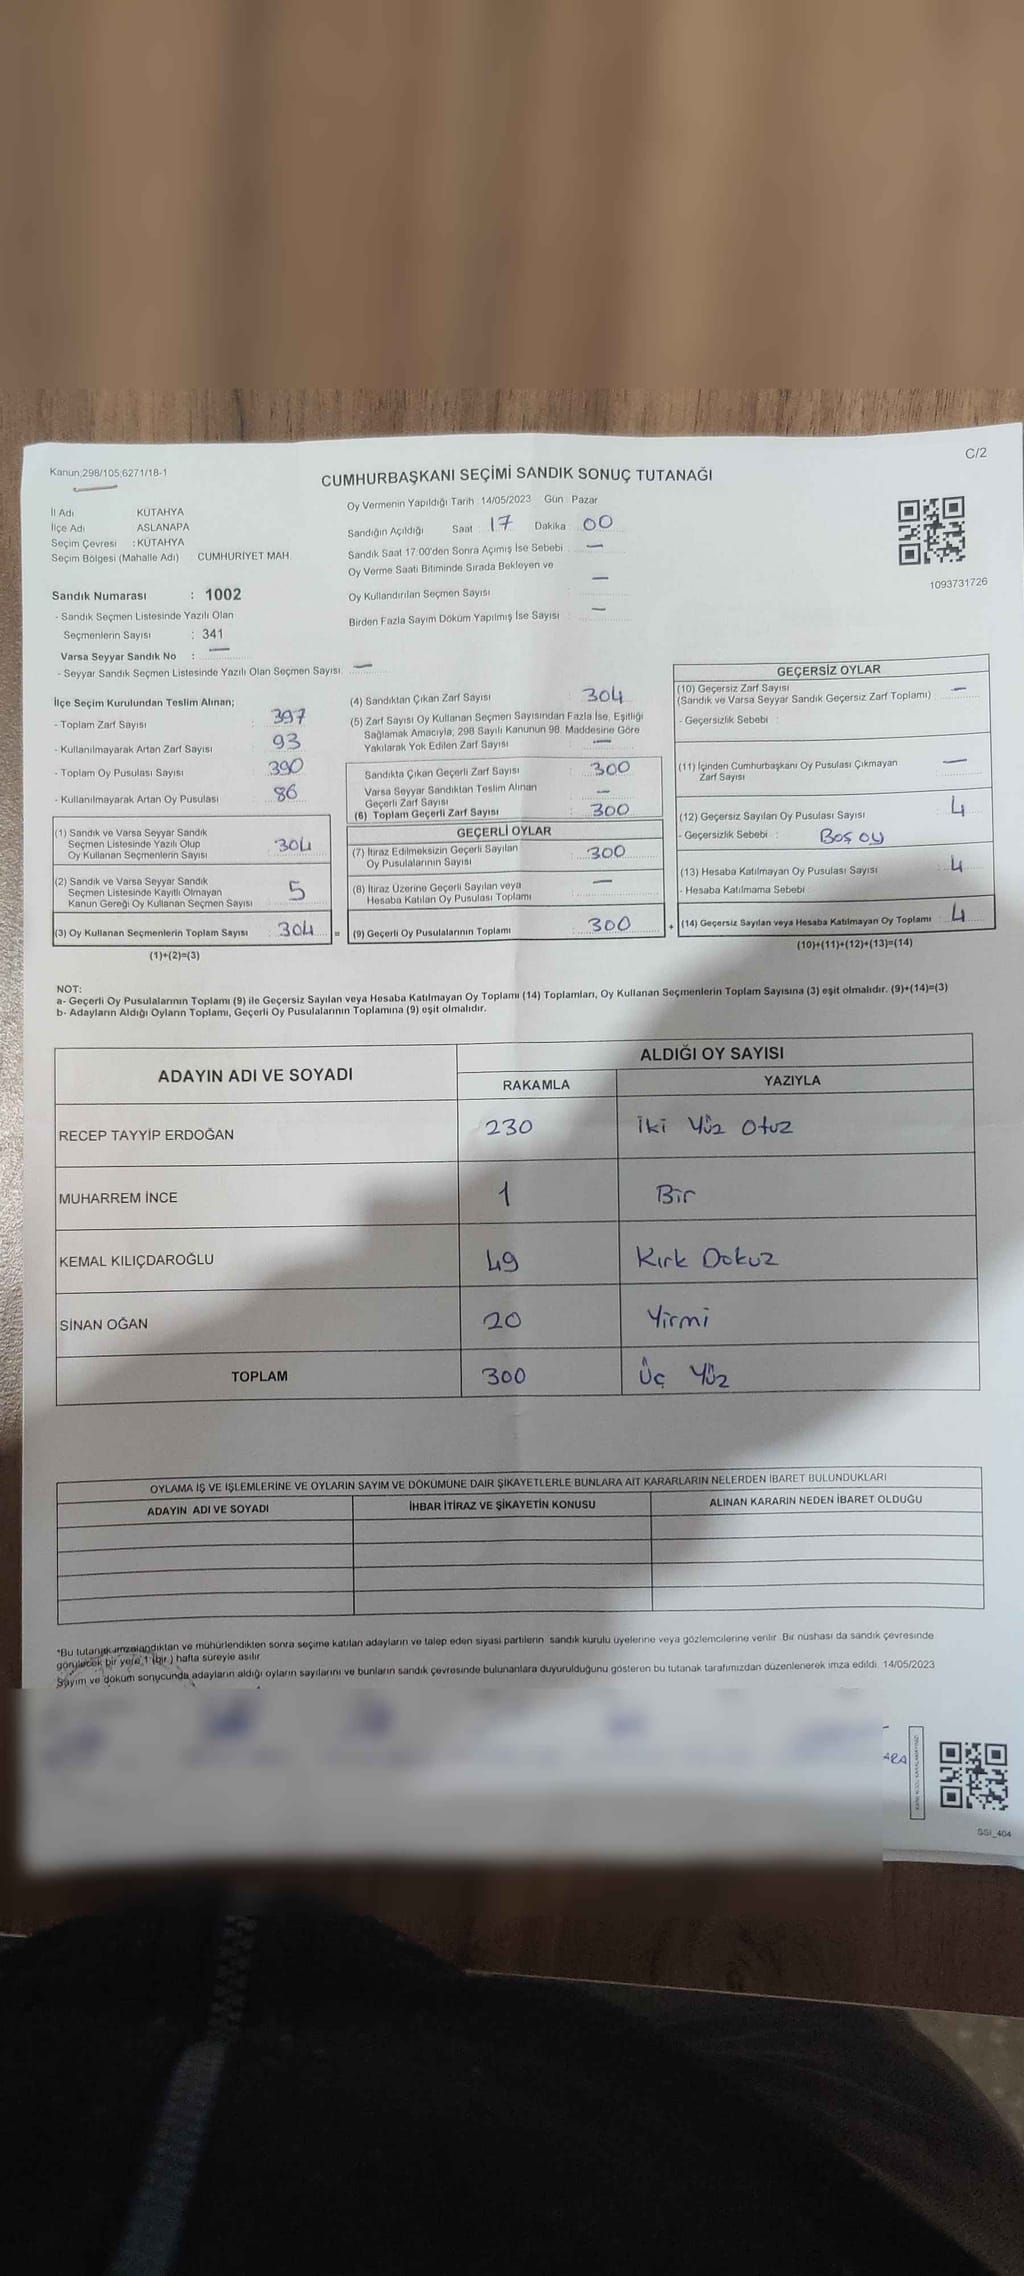 Kanun:298/105,6271/18-1
C/2
CUMHURBAŞKANI SEÇİMİ SANDIK SONUÇ TUTANAĞI
İl Adı KÜTAHYA
İlçe Adı ASLANAPA
Seçim Çevresi : KÜTAHYA
Seçim Bölgesi (Mahalle Adı) CUMHURİYET MAH.
Sandık Numarası : 1002
- Sandık Seçmen Listesinde Yazılı Olan
Seçmenlerin Sayısı : 341
Varsa Seyyar Sandık No : —
- Seyyar Sandık Seçmen Listesinde Yazılı Olan Seçmen Sayısı : —
Oy Vermenin Yapıldığı Tarih : 14/05/2023 Gün : Pazar
Sandığın Açıldığı Saat : 17 Dakika : 00
Sandık Saat 17:00'den Sonra Açımış İse Sebebi : —
Oy Verme Saati Bitiminde Sırada Bekleyen ve
Oy Kullandırılan Seçmen Sayısı : —
Birden Fazla Sayım Döküm Yapılmış İse Sayısı : —
1093731726
İlçe Seçim Kurulundan Teslim Alınan;
- Toplam Zarf Sayısı : 397
- Kullanılmayarak Artan Zarf Sayısı : 93
- Toplam Oy Pusulası Sayısı : 390
- Kullanılmayarak Artan Oy Pusulası : 86
(1) Sandık ve Varsa Seyyar Sandık
Seçmen Listesinde Yazılı Olup
Oy Kullanan Seçmenlerin Sayısı : 304
(2) Sandık ve Varsa Seyyar Sandık
Seçmen Listesinde Kayıtlı Olmayan
Kanun Gereği Oy Kullanan Seçmen Sayısı : 5
(3) Oy Kullanan Seçmenlerin Toplam Sayısı : 304 =
(1)+(2)=(3)
(4) Sandıktan Çıkan Zarf Sayısı : 304
(5) Zarf Sayısı Oy Kullanan Seçmen Sayısından Fazla İse, Eşitliği
Sağlamak Amacıyla, 298 Sayılı Kanunun 98. Maddesine Göre
Yakılarak Yok Edilen Zarf Sayısı : —
Sandıkta Çıkan Geçerli Zarf Sayısı : 300
Varsa Seyyar Sandıktan Teslim Alınan
Geçerli Zarf Sayısı : —
(6) Toplam Geçerli Zarf Sayısı : 300
GEÇERLİ OYLAR
(7) İtiraz Edilmeksizin Geçerli Sayılan
Oy Pusulalarının Sayısı : 300
(8) İtiraz Üzerine Geçerli Sayılan veya
Hesaba Katılan Oy Pusulası Toplamı : —
(9) Geçerli Oy Pusulalarının Toplamı : 300 +
GEÇERSİZ OYLAR
(10) Geçersiz Zarf Sayısı
(Sandık ve Varsa Seyyar Sandık Geçersiz Zarf Toplamı) : —
- Geçersizlik Sebebi :
(11) İçinden Cumhurbaşkanı Oy Pusulası Çıkmayan
Zarf Sayısı : —
(12) Geçersiz Sayılan Oy Pusulası Sayısı : 4
- Geçersizlik Sebebi : Boş oy
(13) Hesaba Katılmayan Oy Pusulası Sayısı : 4
- Hesaba Katılmama Sebebi
(14) Geçersiz Sayılan veya Hesaba Katılmayan Oy Toplamı : 4
(10)+(11)+(12)+(13)=(14)
NOT:
a- Geçerli Oy Pusulalarının Toplamı (9) ile Geçersiz Sayılan veya Hesaba Katılmayan Oy Toplamı (14) Toplamları, Oy Kullanan Seçmenlerin Toplam Sayısına (3) eşit olmalıdır. (9)+(14)=(3)
b- Adayların Aldığı Oyların Toplamı, Geçerli Oy Pusulalarının Toplamına (9) eşit olmalıdır.
ADAYIN ADI VE SOYADI ALDIĞI OY SAYISI
RAKAMLA YAZIYLA
RECEP TAYYİP ERDOĞAN 230 İki Yüz Otuz
MUHARREM İNCE 1 Bir
KEMAL KILIÇDAROĞLU 49 Kırk Dokuz
SİNAN OĞAN 20 Yirmi
TOPLAM 300 Üç Yüz
OYLAMA İŞ VE İŞLEMLERİNE VE OYLARIN SAYIM VE DÖKÜMÜNE DAİR ŞİKAYETLERLE BUNLARA AİT KARARLARIN NELERDEN İBARET BULUNDUKLARI
ADAYIN ADI VE SOYADI İHBAR İTİRAZ VE ŞİKAYETİN KONUSU ALINAN KARARIN NEDEN İBARET OLDUĞU
*Bu tutanak imzalandıktan ve mühürlendikten sonra seçime katılan adayların ve talep eden siyasi partilerin sandık kurulu üyelerine veya gözlemcilerine verilir. Bir nüshası da sandık çevresinde
görülecek bir yere 1 (bir) hafta süreyle asılır.
Sayım ve döküm sonucunda adayların aldığı oyların sayılarını ve bunların sandık çevresinde bulunanlara duyurulduğunu gösteren bu tutanak tarafımızdan düzenlenerek imza edildi. 14/05/2023
ARA
SSİ_404